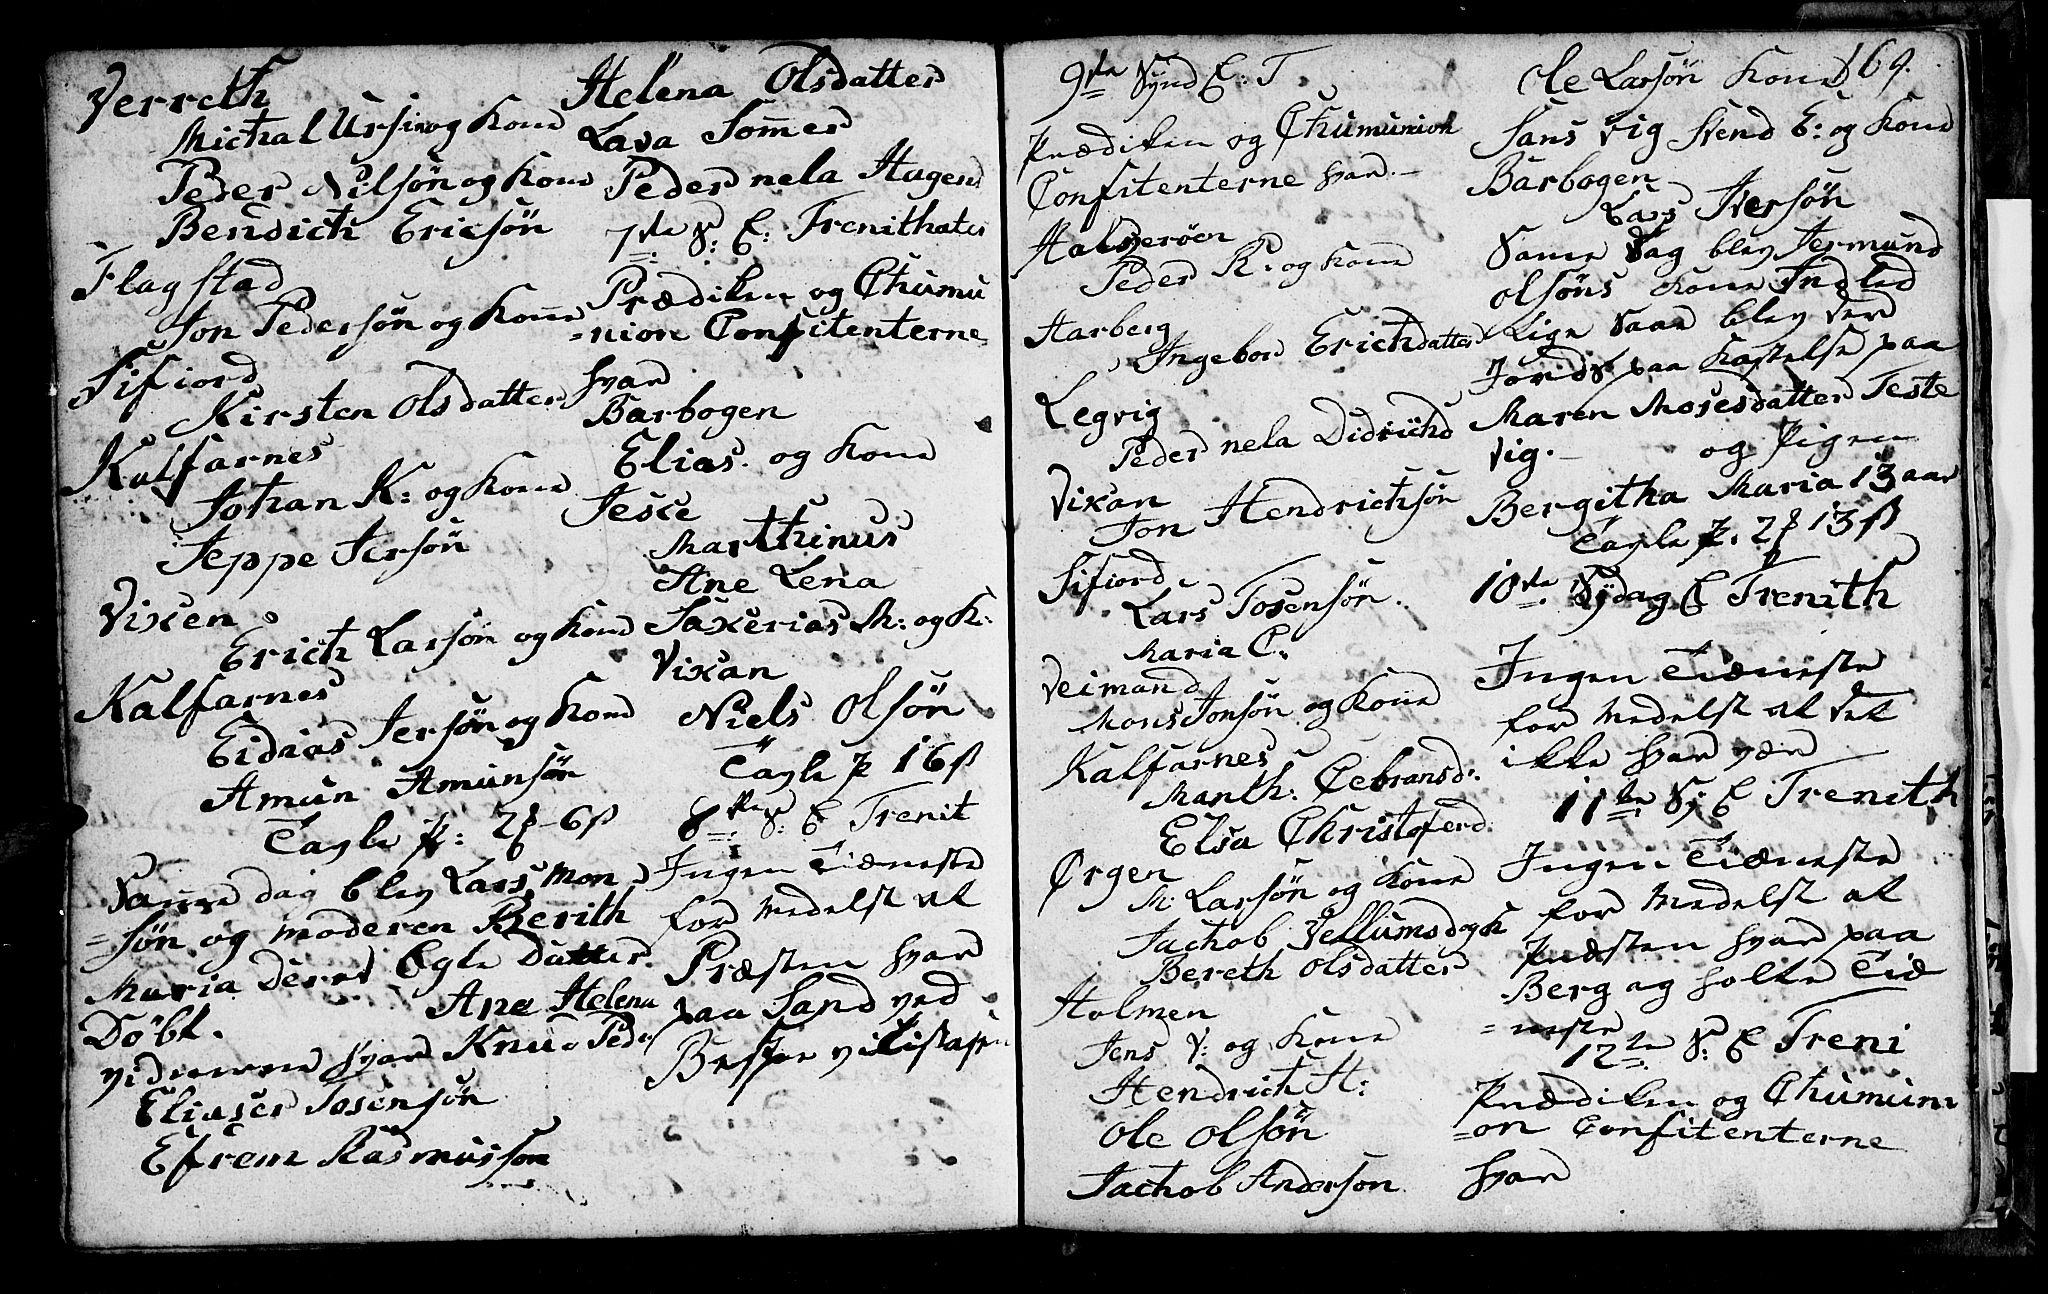 Verreth
Michal Ursin og Kone
Peder Nilsön og Kone
Bendich Ericsön
Flagstad
Jon Pedersön og Kone
Sifiord
Kirsten Olsdatter
Kalfarnes
Johan K: og Kone
Jeppe Jersön
Vixen
Erich Larsön og Kone
Kalfarnes
Eidias Jersön og Kone
Amun Amunsön
Tagle p: 2 6 ß
Samme dag blev Lars Mon
=sön og moderen Berith
Maria Deres Egte Datter
Ane Helena
Döbt.
vidnerne hvar Knu Peder
Eliaser Tosensön
Efrem Rasmusson
Helena Olsdatter
Lava Somer
Peder nela Hagens
7de S: E: Trenithates
Prædiken og Chumu
=nion Confitenterne
hvar
Barbogen
Elias og Kone
Jeske
Marthinus
Ane Lena
Saxerias M: og K:
Vixan
Niels Olsön
Tagle p 16 ß
8de S: E Trenit
Ingen Tiæneste
for medelst at
Præsten hvar
paa Sand ved
Besse
9de Synd E: T
Prædiken og Chumunion
Confitenterne hvar.
Halsgerøen
Peder R: og Kone
Harberg
Ingebor Erichdatter
Legvig
Peder nela Didrichs
Vixan
Jon Hendrichsön
Sifiord
Lars Tosensön
Maria C.
Veimand
Mons Jonsön og Kone
Kalfarnes
Manth: Cebransd:
Elsa Christoferd:
Ørgen
M: Larsön og Kone
Jachob Jellums dogh
Bereth Olsdatter
Holmen
Jens V: og Kone
Hendrich H:
Ole Olsön
Jachob Anderson
169.
Ole Larsön Kone
Sans Vig Svend E: og Kone
Barbogen
Lars Iversön
Same Dag blev Jermund
Olsöns Kone Indled
Lige Saae blev der
Jords paa Kastelse paa
Maren Mosesdatter Teste
vig. og Pigen
Bergitha Maria 13 aar
Tagle p. 2 13 ß
10de Sydag E Trenith
Ingen Tiæneste
for medelst at det
ikke hvar vær
11te S: E Trenith
Ingen Tiæneste
for medelst at
Præsten hvar paa
Berg ag holte Tiæ
=neste
12te S: E Treni
Prædiken og Chumuni
=on Confitenterne
hvar